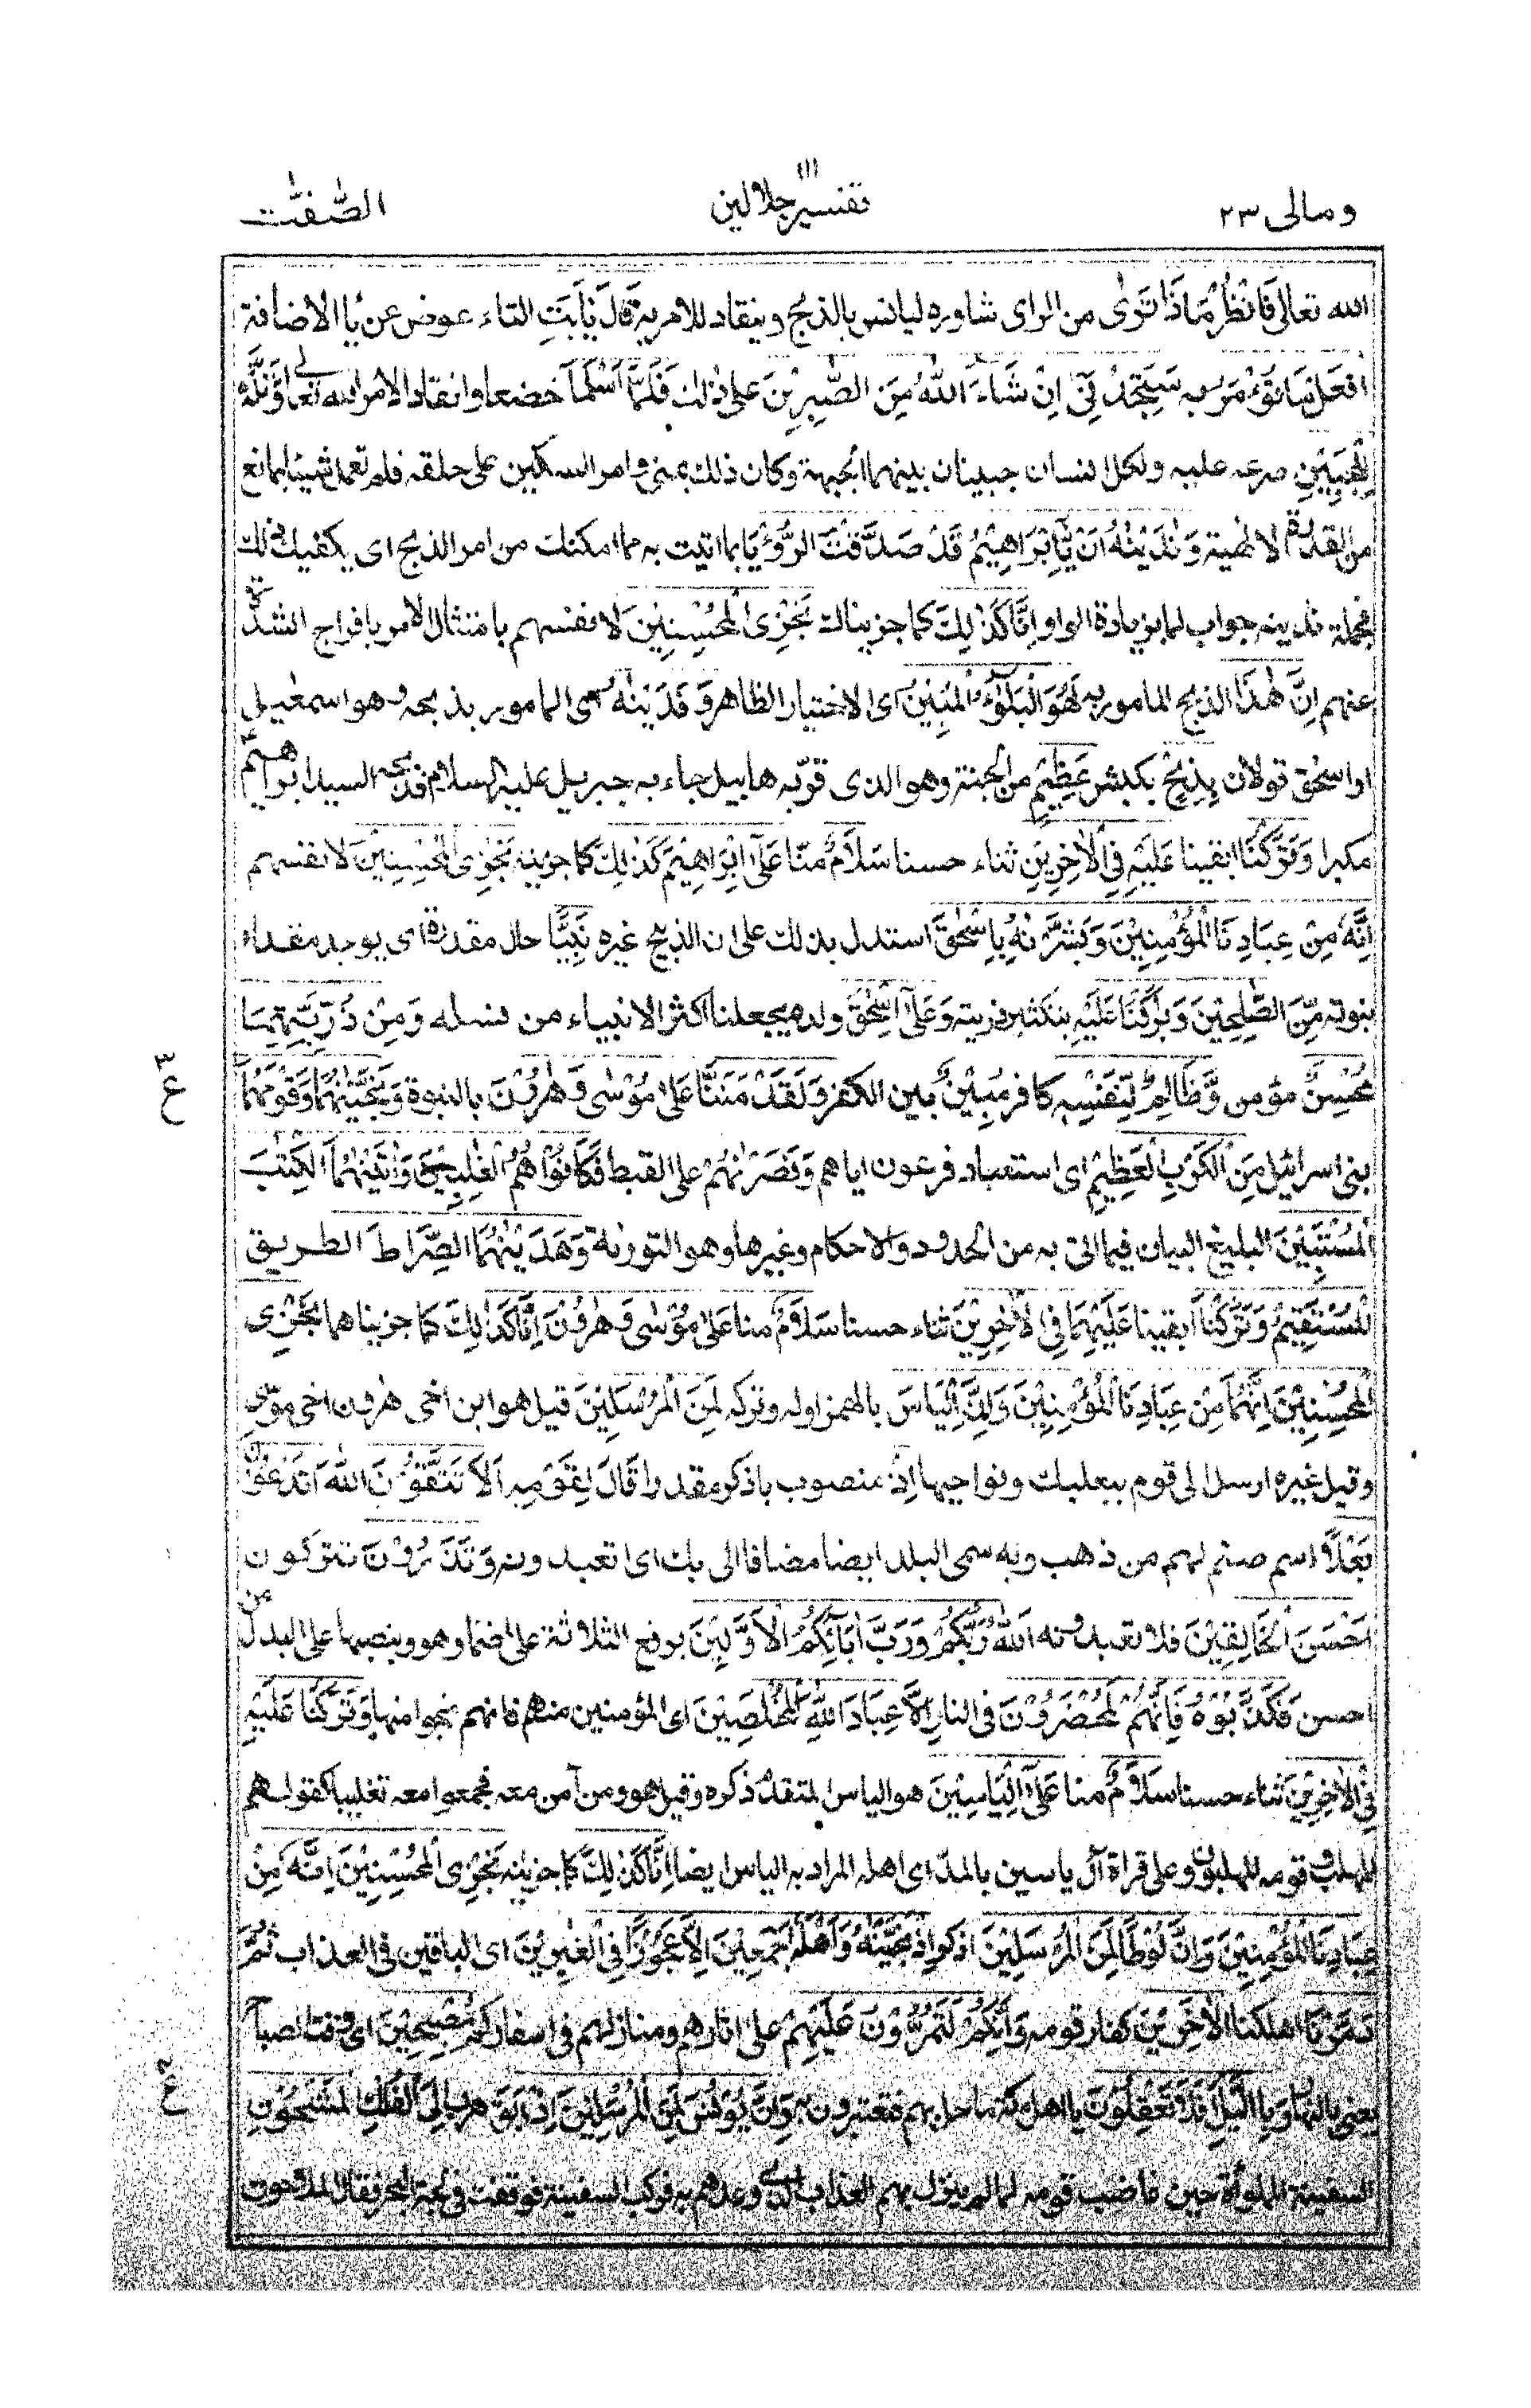 ومالی ٢٣
تفسیر جلالین
الصّٰفّٰت
الله تعالى فَانْظُرْ مَاذَا تَرٰى من الراى شاوره ليانس بالذبح وينقاد للامر به قَالَ يٰاَبَتِ التاء عوض عن ياء الاضافة
افْعَلْ مَا تُؤْمَرُ به سَتَجِدُنِيْ اِنْ شَآءَ اللّٰهُ مِنَ الصّٰبِرِيْنَ على ذلك فَلَمَّا اَسْلَمَا خضعا وانقادا لامر الله تعالى وَتَلَّهٗ
لِلْجَبِيْنِ صرعه عليه ولكل انسان جبينان بينهما الجبهة وكان ذلك بمنى وامر السكين على حلقه فلم تعمل شيئا بمانع
من القدرة الالهية وَنَادَيْنٰهُ اَنْ يّٰاِبْرَاهِيْمُ قَدْ صَدَّقْتَ الرُّءْيَا بما اتيت به مما امكنك من امر الذبح اى يكفيك ذلك
فجملة نادينه جواب لما بزيادة الواو اِنَّا كَذٰلِكَ كما جزيناك نَجْزِى الْمُحْسِنِيْنَ لانفسهم بامتثال الامر بافراج الشدة
عنهم اِنَّ هٰذَا الذبح المامور به لَهُوَ الْبَلٰٓؤُا الْمُبِيْنُ اى الاختبار الظاهر وَفَدَيْنٰهُ اى المامور بذبحه وهو اسمعيل
او اسحٰق قولان بِذِبْحٍ بكبش عَظِيْمٍ من الجنة وهو الذى قربه هابيل جاء به جبريل عليه السلام فذبحه السيد ابراهيم
مكبرا وَتَرَكْنَا ابقينا عَلَيْهِ فِى الْاٰخِرِيْنَ ثناء حسنا سَلٰمٌ منا عَلٰٓى اِبْرَاهِيْمَ كَذٰلِكَ كما جزينه نَجْزِى الْمُحْسِنِيْنَ لانفسهم
اِنَّهٗ مِنْ عِبَادِنَا الْمُؤْمِنِيْنَ وَبَشَّرْنٰهُ بِاِسْحٰقَ استدل بذلك على ان الذبيح غيره نَبِيًّا حال مقدرة اى يوجد مقدرا
نبوته مِّنَ الصّٰلِحِيْنَ وَبٰرَكْنَا عَلَيْهِ بتكثير ذريته وَعَلٰٓى اِسْحٰقَ ولده بجعلنا اكثر الانبياء من نسله وَمِنْ ذُرِّيَّتِهِمَا
مُحْسِنٌ مؤمن وَّظَالِمٌ لِّنَفْسِهٖ كافر مُبِيْنٌ بين الكفر وَلَقَدْ مَنَنَّا عَلٰى مُوْسٰى وَهٰرُوْنَ بالنبوة وَنَجَّيْنٰهُمَا وَقَوْمَهُمَا
بنى اسرائيل مِنَ الْكَرْبِ الْعَظِيْمِ اى استعباد فرعون اياهم وَنَصَرْنٰهُمْ على القبط فَكَانُوْا هُمُ الْغٰلِبِيْنَ وَاٰتَيْنٰهُمَا الْكِتٰبَ
الْمُسْتَبِيْنَ البليغ البيان فيما اتى به من الحدود والاحكام وغيرها وهو التورٰة وَهَدَيْنٰهُمَا الصِّرَاطَ الطريق
الْمُسْتَقِيْمَ وَتَرَكْنَا ابقينا عَلَيْهِمَا فِى الْاٰخِرِيْنَ ثناء حسنا سَلٰمٌ منا عَلٰى مُوْسٰى وَهٰرُوْنَ اِنَّا كَذٰلِكَ كما جزيناهما نَجْزِى
الْمُحْسِنِيْنَ اِنَّهُمَا مِنْ عِبَادِنَا الْمُؤْمِنِيْنَ وَاِنَّ اِلْيَاسَ بالهمز اوله وتركه لَمِنَ الْمُرْسَلِيْنَ قيل هو ابن اخى هٰرون اخى موسى
وقيل غيره ارسل الى قوم ببعلبك ونواحيها اِذْ منصوب باذكر مقدرا قَالَ لِقَوْمِهٖٓ اَلَا تَتَّقُوْنَ الله اَتَدْعُوْنَ
بَعْلًا اسم صنم لهم من ذهب وبه سمى البلد ايضا مضافا الى بك اى اتعبدونه وَتَذَرُوْنَ تتركون
اَحْسَنَ الْخَالِقِيْنَ فلا تعبدونه اَللّٰهُ رَبُّكُمْ وَرَبُّ اٰبَآئِكُمُ الْاَوَّلِيْنَ برفع الثلاثة على اضمار هو وبنصبها على البدل من
احسن فَكَذَّبُوْهُ فَاِنَّهُمْ لَمُحْضَرُوْنَ فى النار اِلَّا عِبَادَ اللّٰهِ الْمُخْلَصِيْنَ اى المؤمنين منهم فانهم نجوا منها وَتَرَكْنَا عَلَيْهِ
فِى الْاٰخِرِيْنَ ثناء حسنا سَلٰمٌ منا عَلٰٓى اِلْيَاسِيْنَ هو الياس المتقدم ذكره وقيل هو ومن آمن معه فجمعوا معه تغليبا كقولهم
للمهلب وقومه المهلبون وعلى قراة آل ياسين بالمد اى اهله المراد به الياس ايضا اِنَّا كَذٰلِكَ كما جزينه نَجْزِى الْمُحْسِنِيْنَ اِنَّهٗ مِنْ
عِبَادِنَا الْمُؤْمِنِيْنَ وَاِنَّ لُوْطًا لَّمِنَ الْمُرْسَلِيْنَ اذكر اِذْ نَجَّيْنٰهُ وَاَهْلَهٗٓ اَجْمَعِيْنَ اِلَّا عَجُوْزًا فِى الْغٰبِرِيْنَ اى الباقين فى العذاب ثُمَّ
دَمَّرْنَا اهلكنا الْاٰخَرِيْنَ كفار قومه وَاِنَّكُمْ لَتَمُرُّوْنَ عَلَيْهِمْ على اثارهم ومنازلهم فى اسفاركم مُّصْبِحِيْنَ اى وقت الصباح
يعنى بالنهار وَبِالَّيْلِ اَفَلَا تَعْقِلُوْنَ يا اهل مكة ما حل بهم فتعتبرون به وَاِنَّ يُوْنُسَ لَمِنَ الْمُرْسَلِيْنَ اِذْ اَبَقَ هرب اِلَى الْفُلْكِ الْمَشْحُوْنِ
السفينة المملوأة حين غاضب قومه لما لم ينزل بهم العذاب الذى وعدهم به فركب السفينة فوقفت فى لجة البحر فقال الملاحون
ع ٣
ع